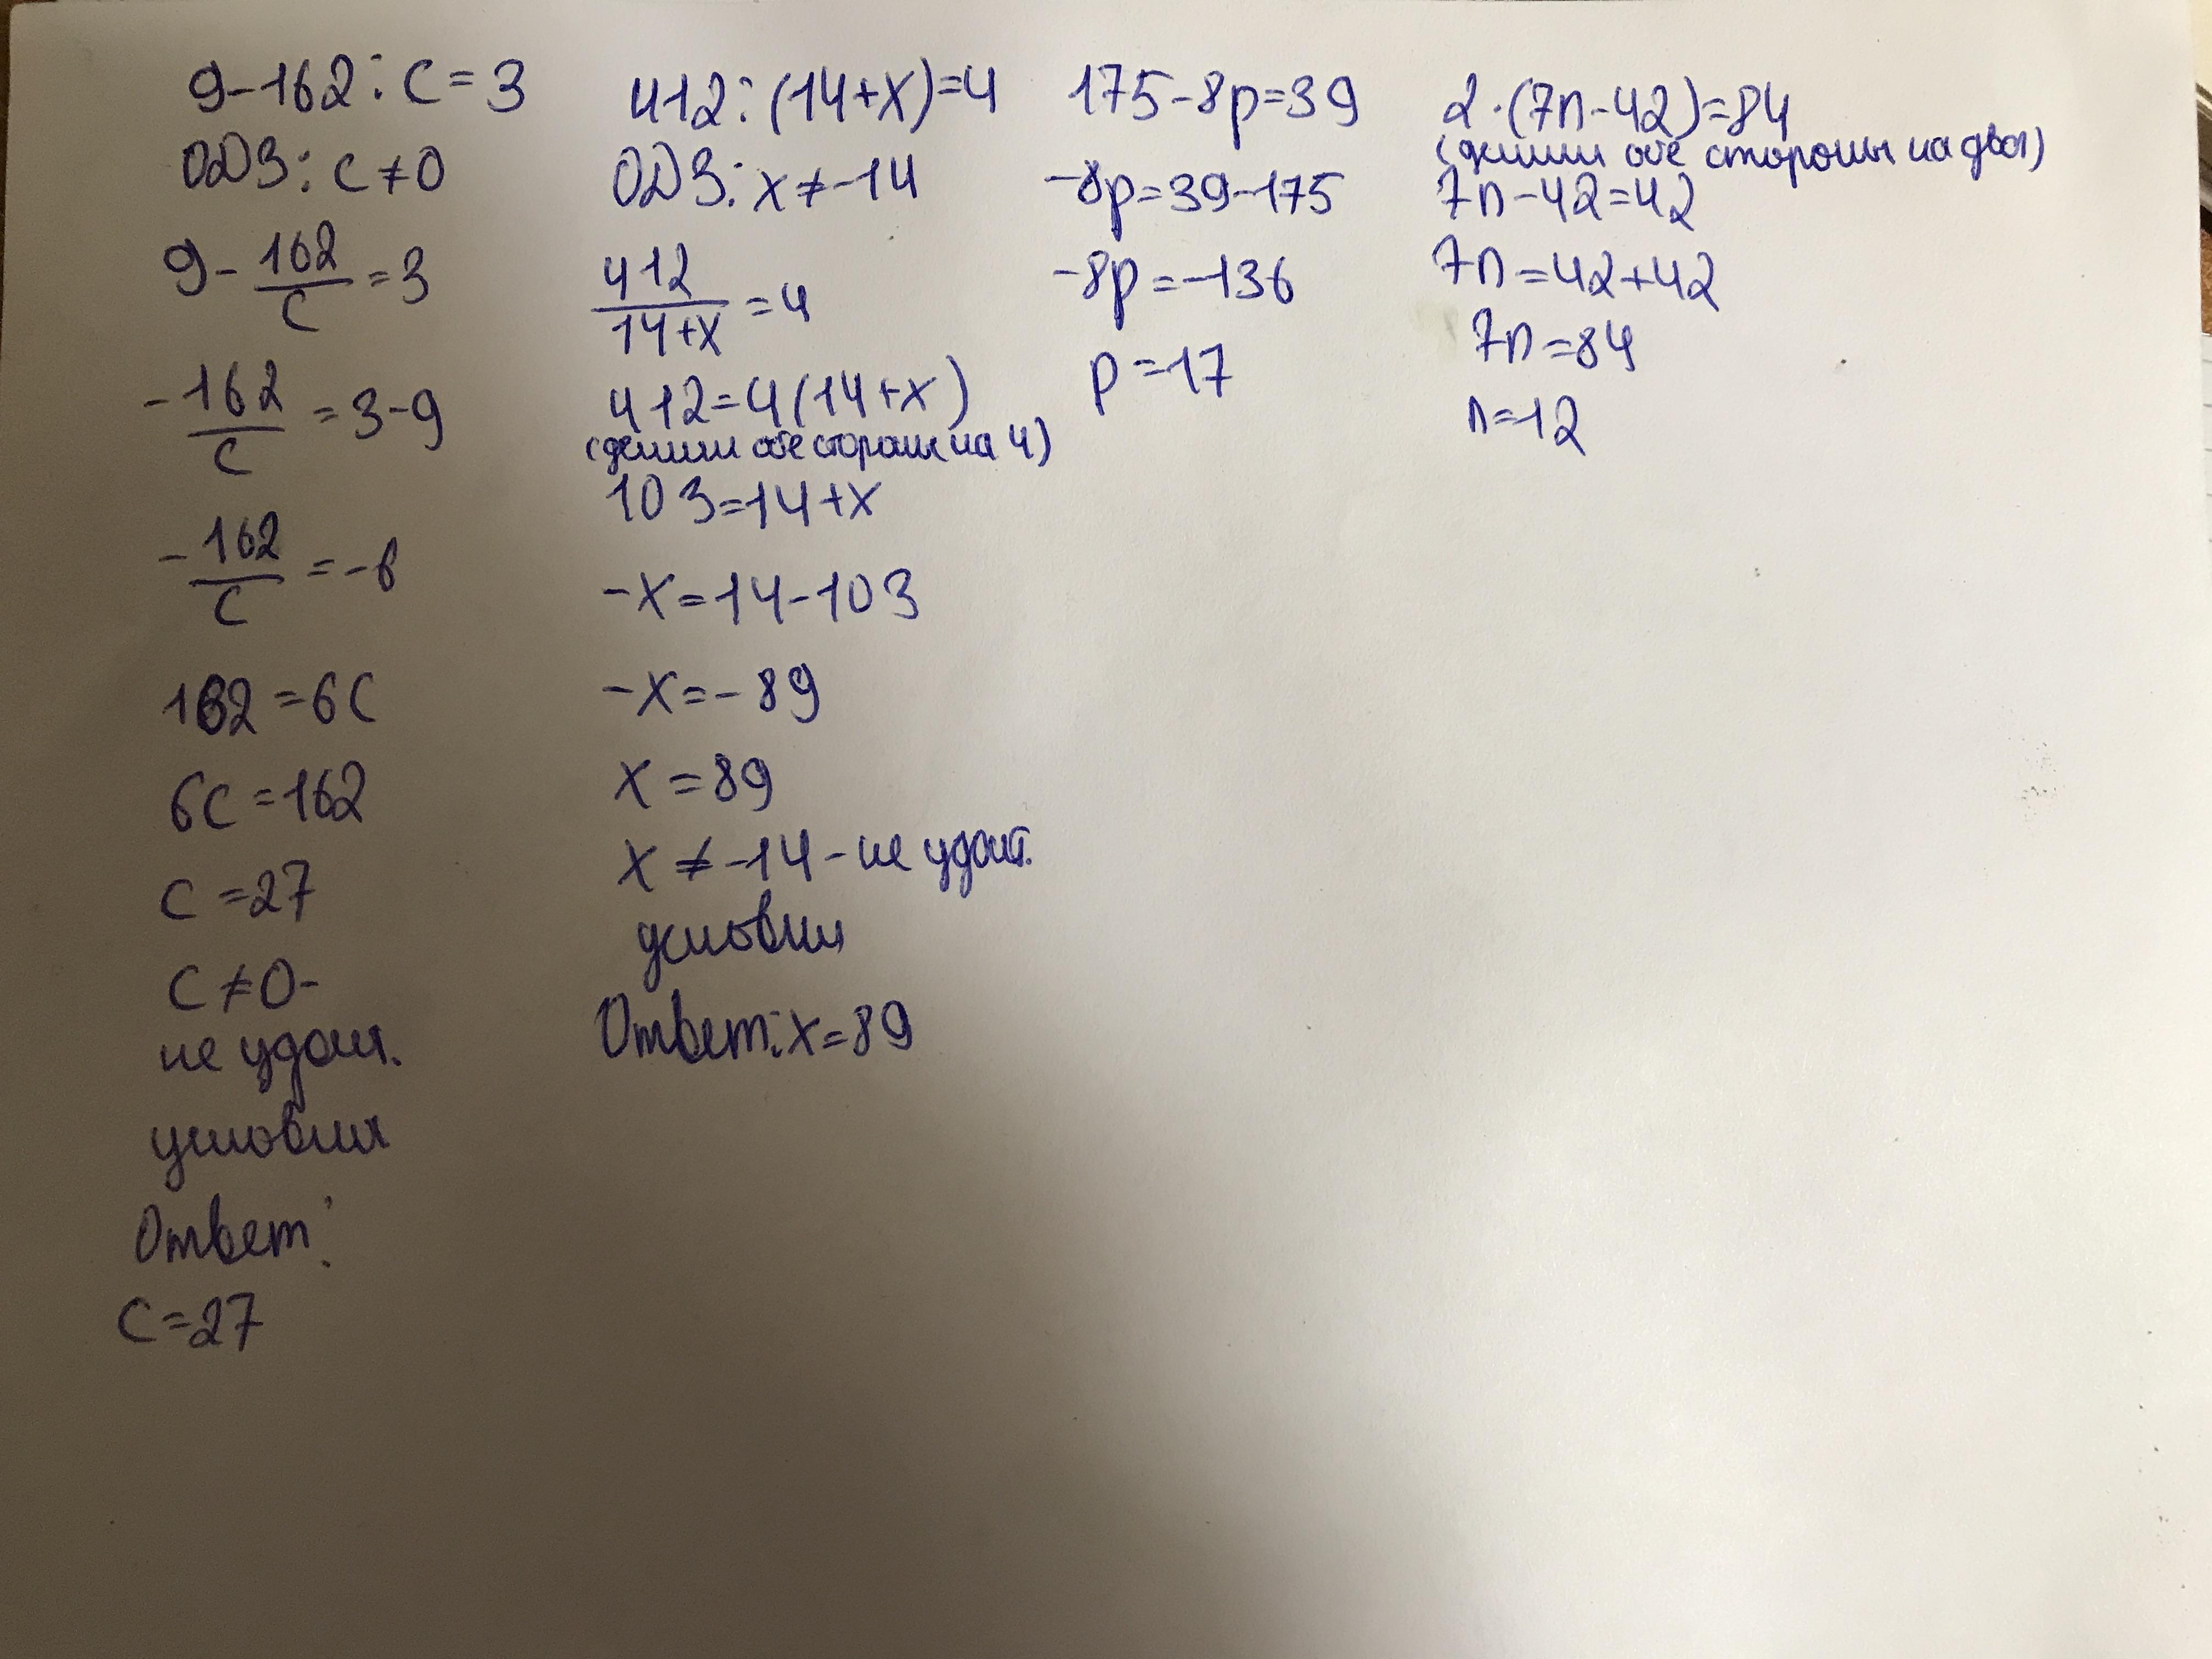 9-162:c=3
ОДЗ: c≠0
9-162/c=3
-162/c=3-9
-162/c=-6
162=6c
6c=162
c=27
c≠0-
не удовл.
условия
Ответ:
c=27
412:(14+x)=4
ОДЗ: x≠-14
412/14+x=4
412=4(14+x)
(делим обе стороны на 4)
103=14+x
-x=14-103
-x=-89
x=89
x≠-14-не удовл.
условия
Ответ: x=89
175-8p=39
-8p=39-175
-8p=-136
p=17
2·(7n-42)=84
(делим обе стороны на два)
7n-42=42
7n=42+42
7n=84
n=12